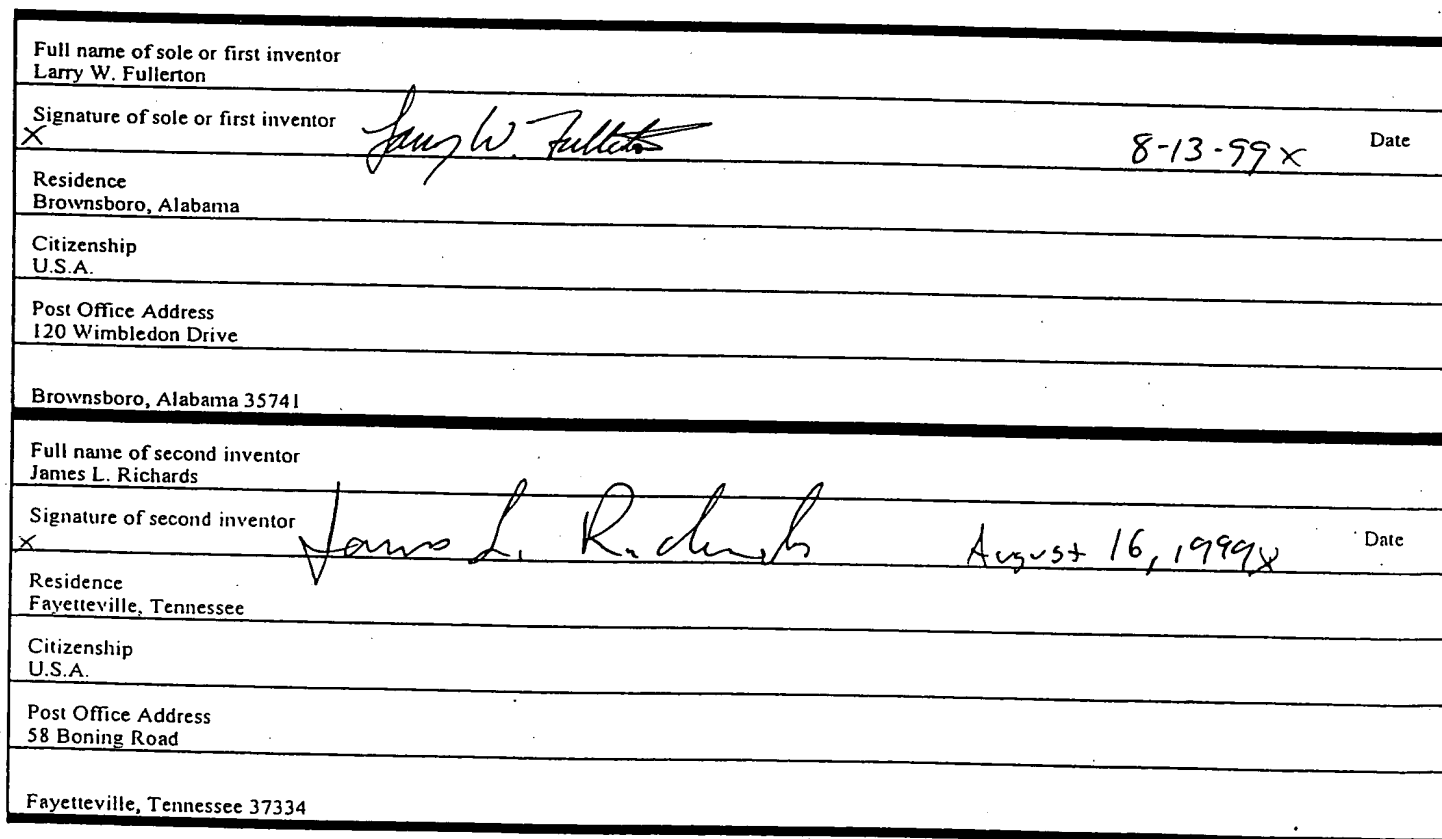 Full name of sole or first inventor
Larry W. Fullerton
Signature of sole or first inventor Larry W. Fullerton 8-13-99 x Date
x
Residence
Brownsboro, Alabama
Citizenship
U.S.A.
Post Office Address
120 Wimbledon Drive
Brownsboro, Alabama 35741
Full name of second inventor
James L. Richards
Signature of second inventor James L. Richards August 16, 1999 x Date
x
Residence
Fayetteville, Tennessee
Citizenship
U.S.A.
Post Office Address
58 Boning Road
Fayetteville, Tennessee 37334